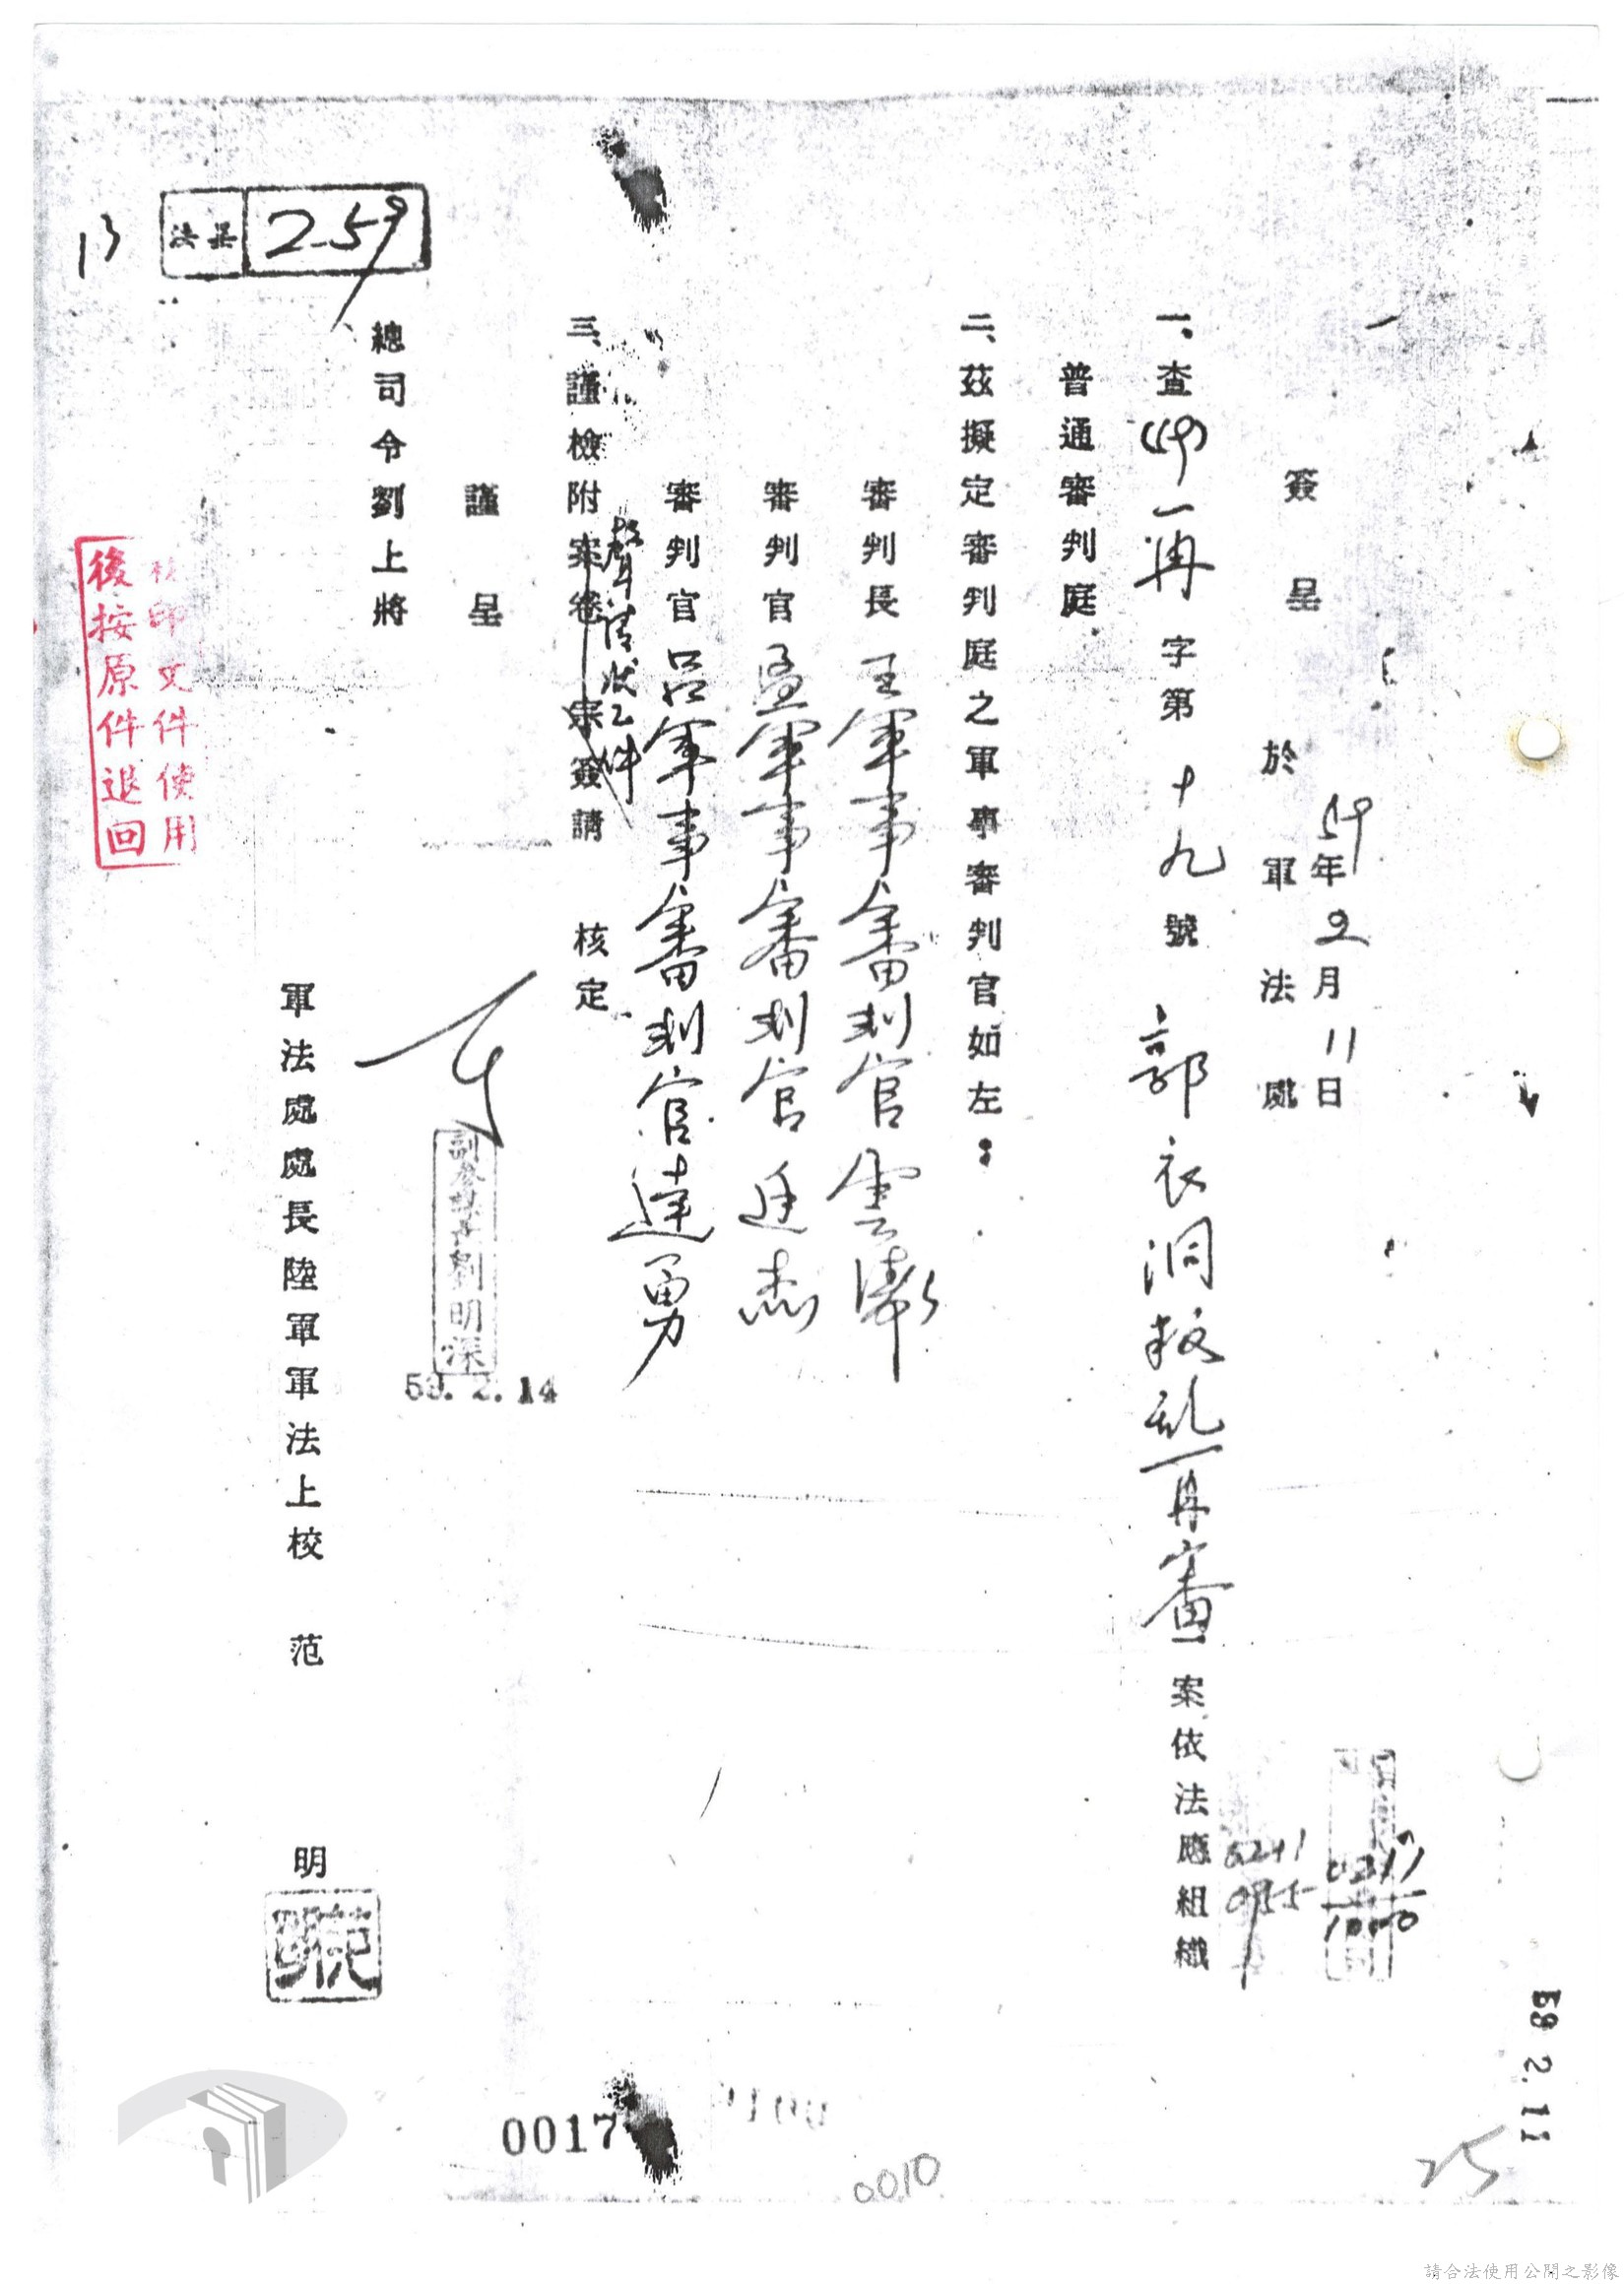 簽呈
59年2月11日
於軍法處
一、查(59)一再字第十九號郭衣洞叛乱再審一案依法應組織
普通審判庭
二、茲擬定審判庭之軍事審判官如左：
審判長王軍事審判官雲濤
審判官孟軍事審判官廷杰
審判官呂軍事審判官達勇
三、謹檢附案卷宗簽請 核定
聲請狀乙件
謹呈
總司令劉上將
副參謀長劉明深
59.2.14
軍法處處長陸軍軍法上校 范明
法呈 2-59
13
核印文件使用
後按原件退回
0241
1000
59.2.11
0017
0010
25
請合法使用公開之影像